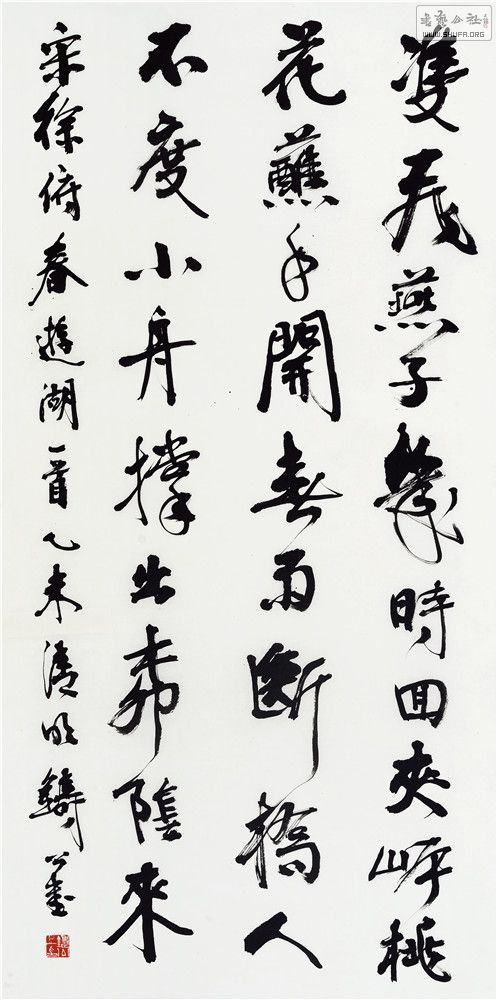 雙飛燕子幾時回夾岸桃
花蘸水開春雨斷橋人
不度小舟撐出柳陰來
宋徐俯春遊湖一首乙未清明公書
书艺公社
WWW.SHUFA.ORG